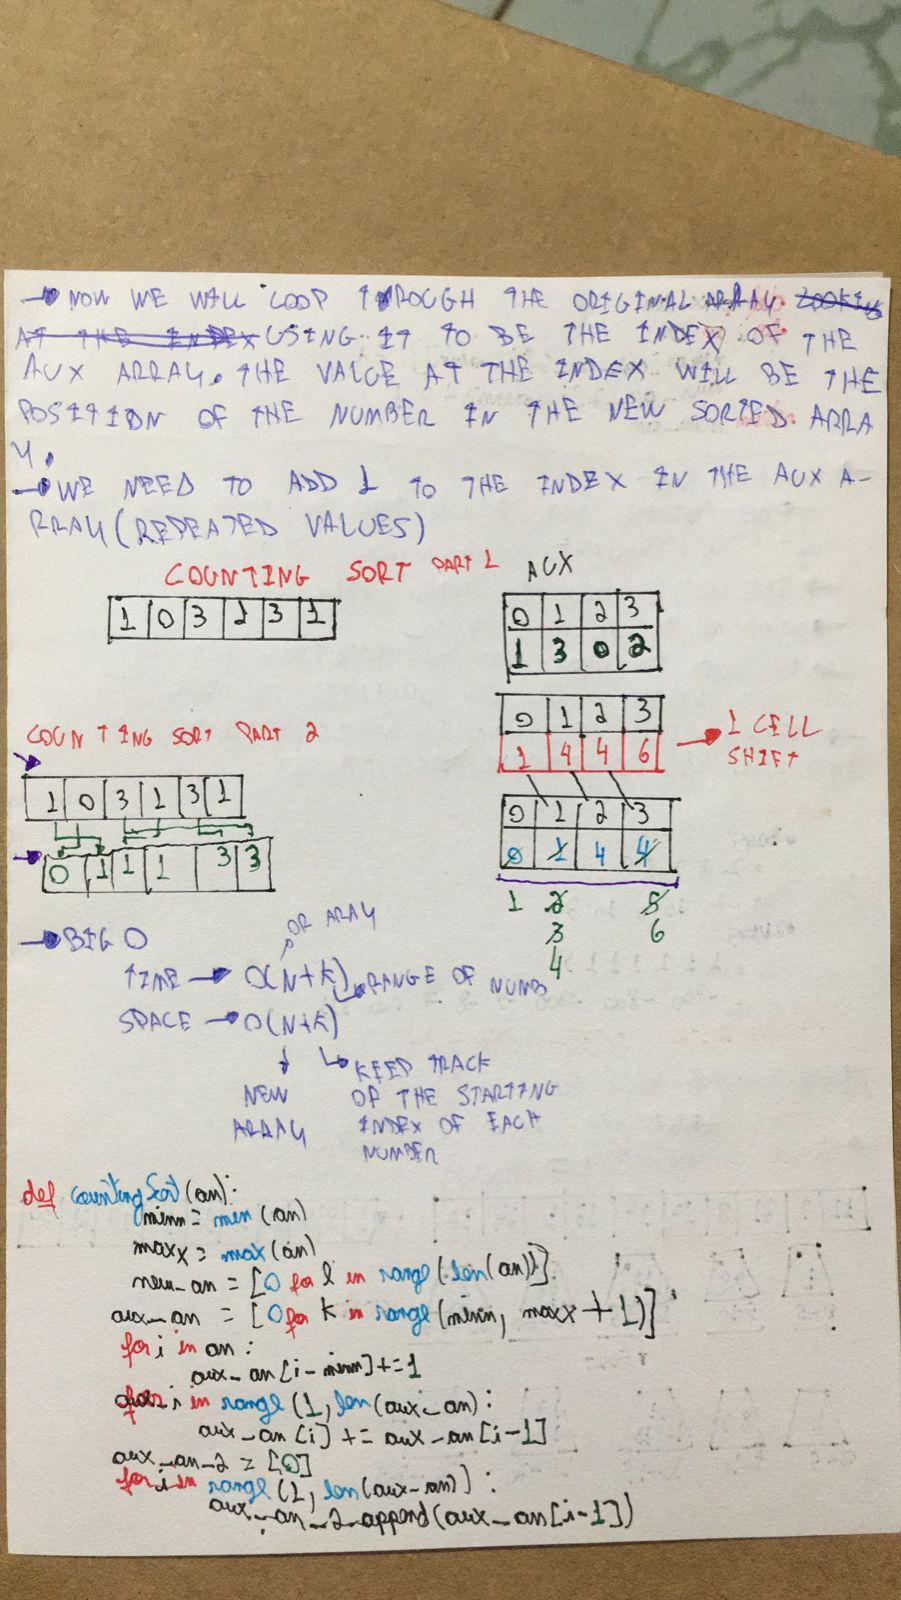 → NOW WE WILL LOOP THROUGH THE ORIGINAL ARRAY LOOKING
AT THE INDEX USING IT TO BE THE INDEX OF THE
AUX ARRAY. THE VALUE AT THE INDEX WILL BE THE
POSITION OF THE NUMBER IN THE NEW SORTED ARRA
Y.
→ WE NEED TO ADD 1 TO THE INDEX IN THE AUX A-
RRAY (REPEATED VALUES)
COUNTING SORT PART 1
AUX
1 0 3 1 3 1
0 1 2 3
1 3 0 2
0 1 2 3
1 4 4 6
→ 1 CELL
SHIFT
COUNTING SORT PART 2
1 0 3 1 3 1
0 1 1 1 3 3
0 1 2 3
0 1 4 4
1 2 5
3 6
4
→ BIG O
OR ARAY
TIME → O(N+K)
RANGE OF NUMB
SPACE → O(N+K)
NEW
ARRAY
KEEP TRACK
OF THE STARTING
INDEX OF EACH
NUMBER
def countingSort(arr):
minn = min(arr)
maxx = max(arr)
new_arr = [0 for l in range(len(arr))]
aux_arr = [0 for k in range(minn, maxx + 1)]
for i in arr:
aux_arr[i-minn] += 1
for i in range(1, len(aux_arr):
aux_arr[i] += aux_arr[i-1]
aux_arr_2 = [0]
for i in range(1, len(aux_arr)):
aux_arr_2.append(aux_arr[i-1])